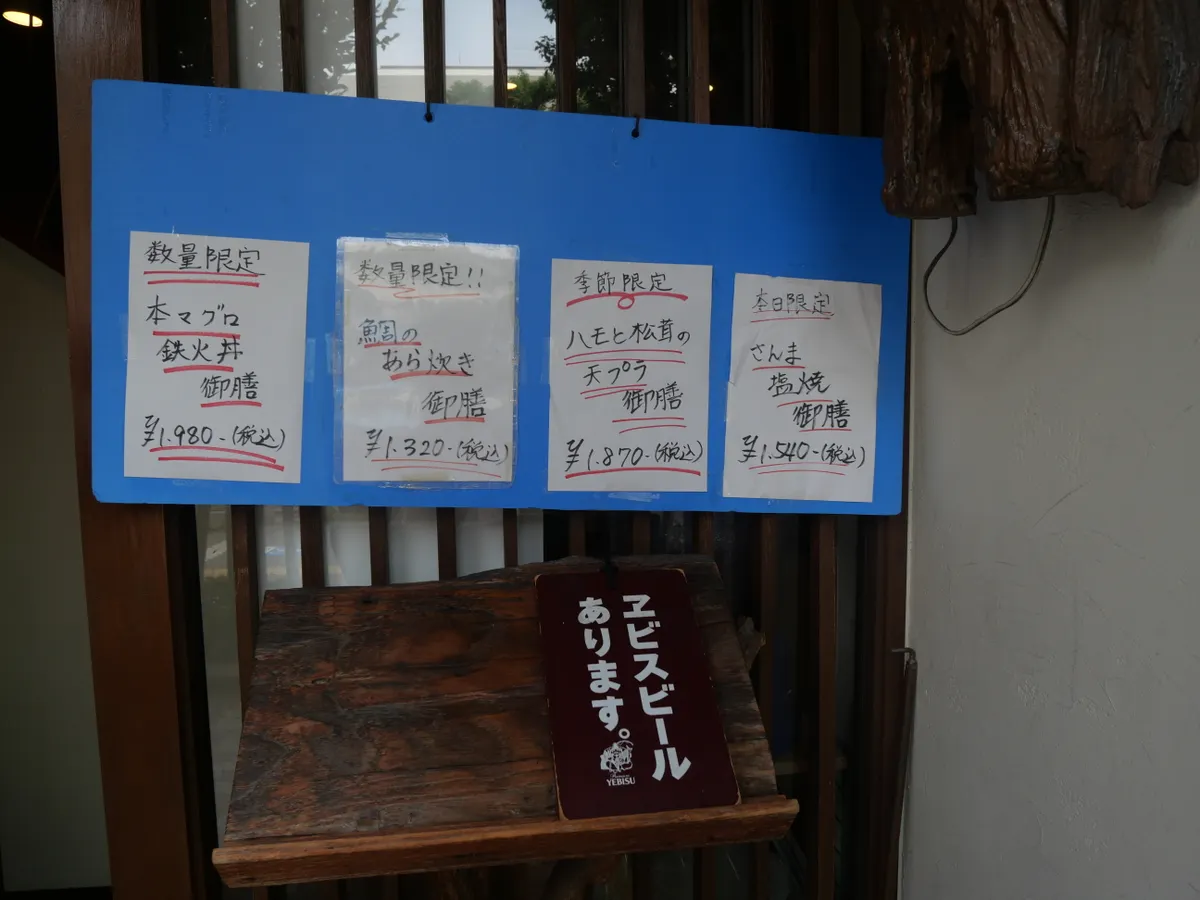 数量限定
本マグロ
鉄火丼
御膳
¥1.980-(税込)
数量限定!!
鯛の
あら炊き
御膳
¥1.320-(税込)
季節限定
ハモと松茸の
天プラ
御膳
¥1.870-(税込)
本日限定
さんま
塩焼
御膳
¥1.540-(税込)
ヱビスビール
あります。
YEBISU